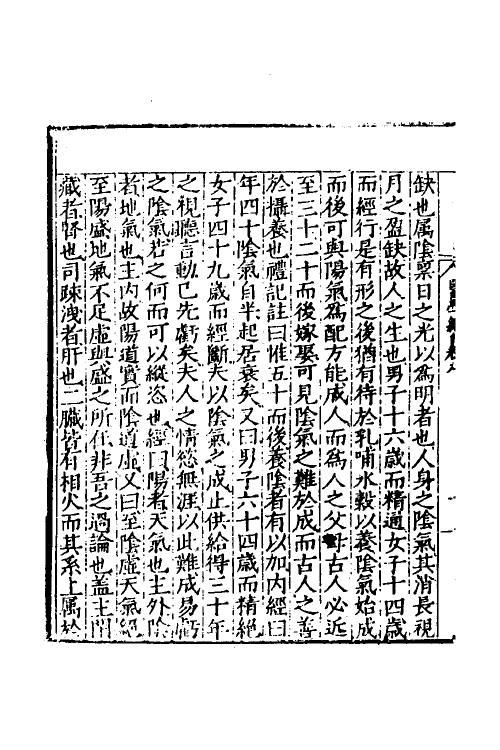 缺也属陰稟日之光以爲明者也人身之陰氣其消長視
月之盈缺故人之生也男子十六歲而精通女子十四歲
而經行是有形之後猶有待於乳哺水穀以養陰氣始成
而後可與陽氣爲配方能成人而爲人之父母古人必近
至三十二十而後嫁娶可見陰氣之難於成而古人之善
於攝養也禮記註曰惟五十而後養陰者有以加內經曰
年四十陰氣自半起居衰矣又曰男子六十四歲而精絕
女子四十九歲而經斷夫以陰氣之成止供給得三十年
之視聽言動已先虧矣夫人之情慾無涯以此難成易虧
之陰氣若之何而可以縱恣也經曰陽者天氣也主外陰
者地氣也主內故陽道實而陰道虛又曰至陰虛天氣絕
至陽盛地氣不足虛與盛之所在非吾之過論也蓋主閉
藏者腎也司疎洩者肝也二臟皆有相火而其系上属於